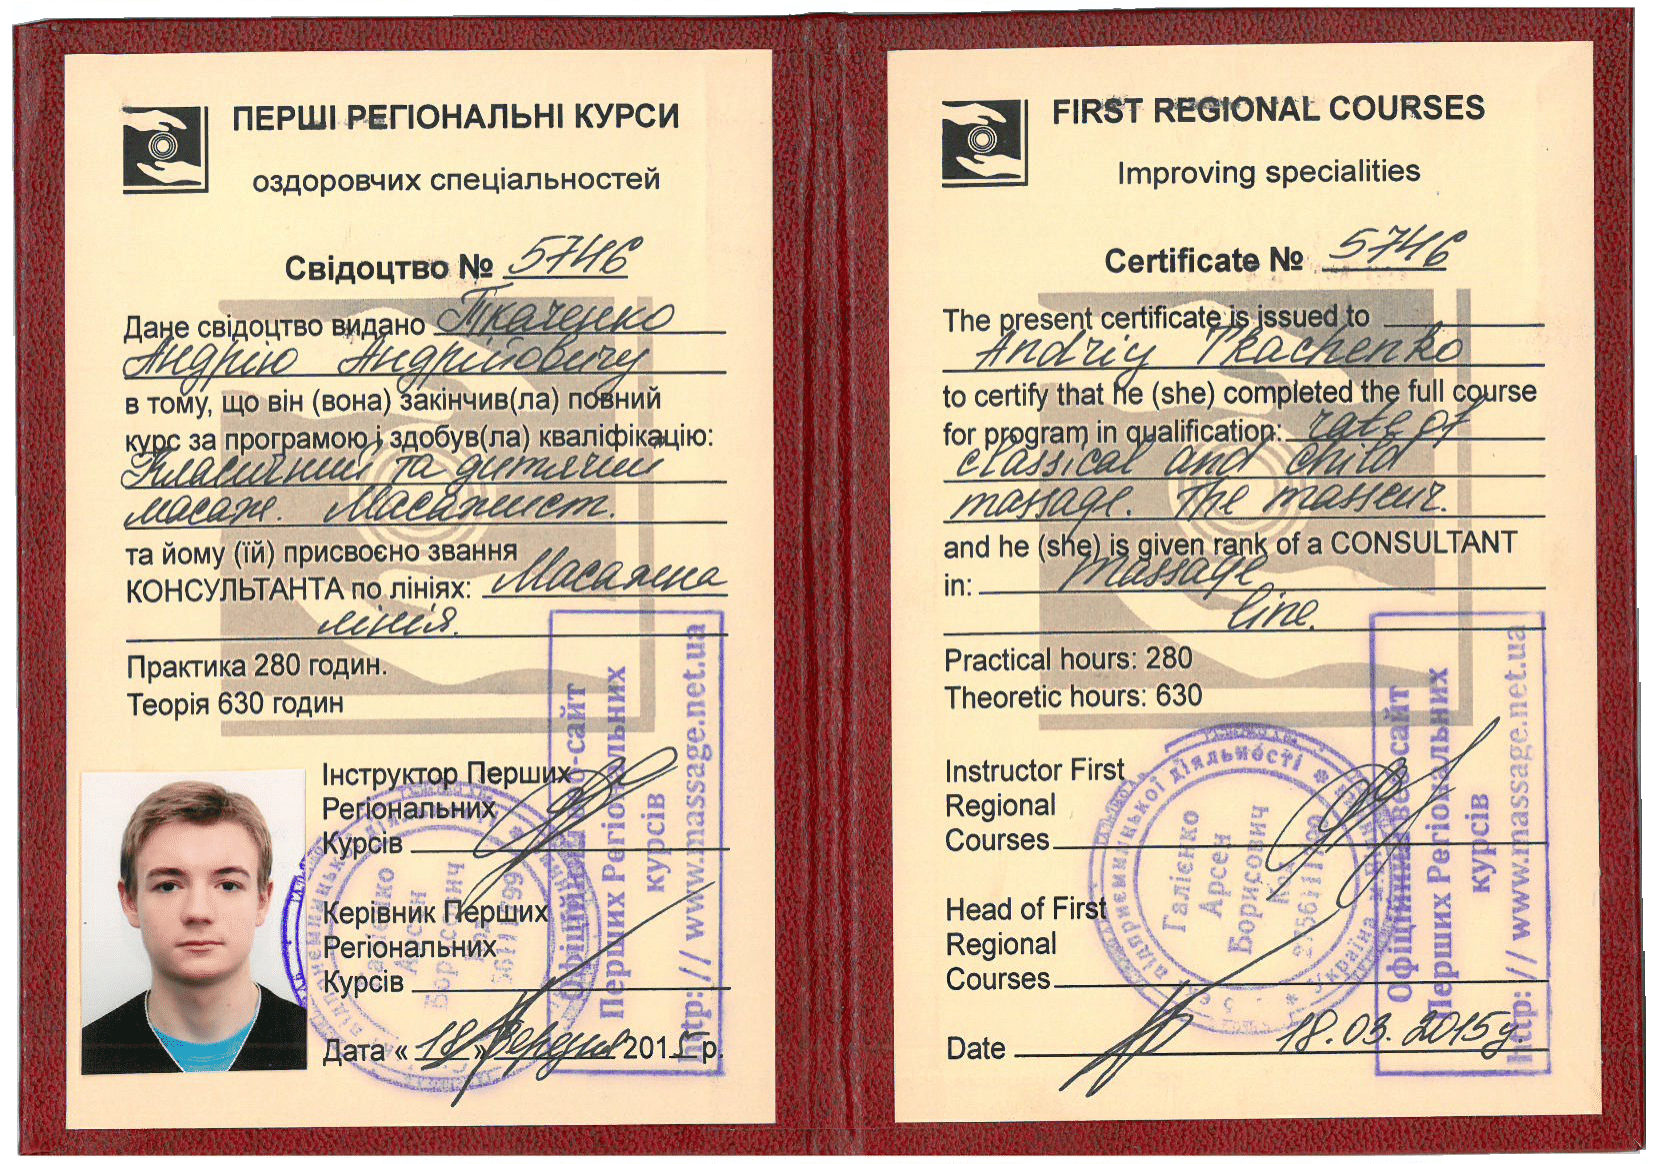 ПЕРШІ РЕГІОНАЛЬНІ КУРСИ
оздоровчих спеціальностей
Свідоцтво № 5746
Дане свідоцтво видано Ткаченко
Андрію Андрійовичу
в тому, що він (вона) закінчив(ла) повний
курс за програмою і здобув(ла) кваліфікацію:
Класичний та дитячий
масаж. Масажист.
та йому (їй) присвоєно звання
КОНСУЛЬТАНТА по лініях: Масажна
лінія.
Практика 280 годин.
Теорія 630 годин
Інструктор Перших
Регіональних
Курсів
Керівник Перших
Регіональних
Курсів
Дата « 18 » березня 201 р.
Офіційний веб-сайт
Перших Регіональних
курсів
http://www.massage.net.ua
FIRST REGIONAL COURSES
Improving specialities
Certificate № 5746
The present certificate is issued to
Andriy Tkachenko
to certify that he (she) completed the full course
for program in qualification: rate of
classical and child
massage. The masseur.
and he (she) is given rank of a CONSULTANT
in: massage
line.
Practical hours: 280
Theoretic hours: 630
Instructor First
Regional
Courses
Head of First
Regional
Courses
Date 18.03.2015у.
підприємницької діяльності
Україна
Галієнко
Арсен
Борисович
Офіційний веб-сайт
Перших Регіональних
курсів
http://www.massage.net.ua